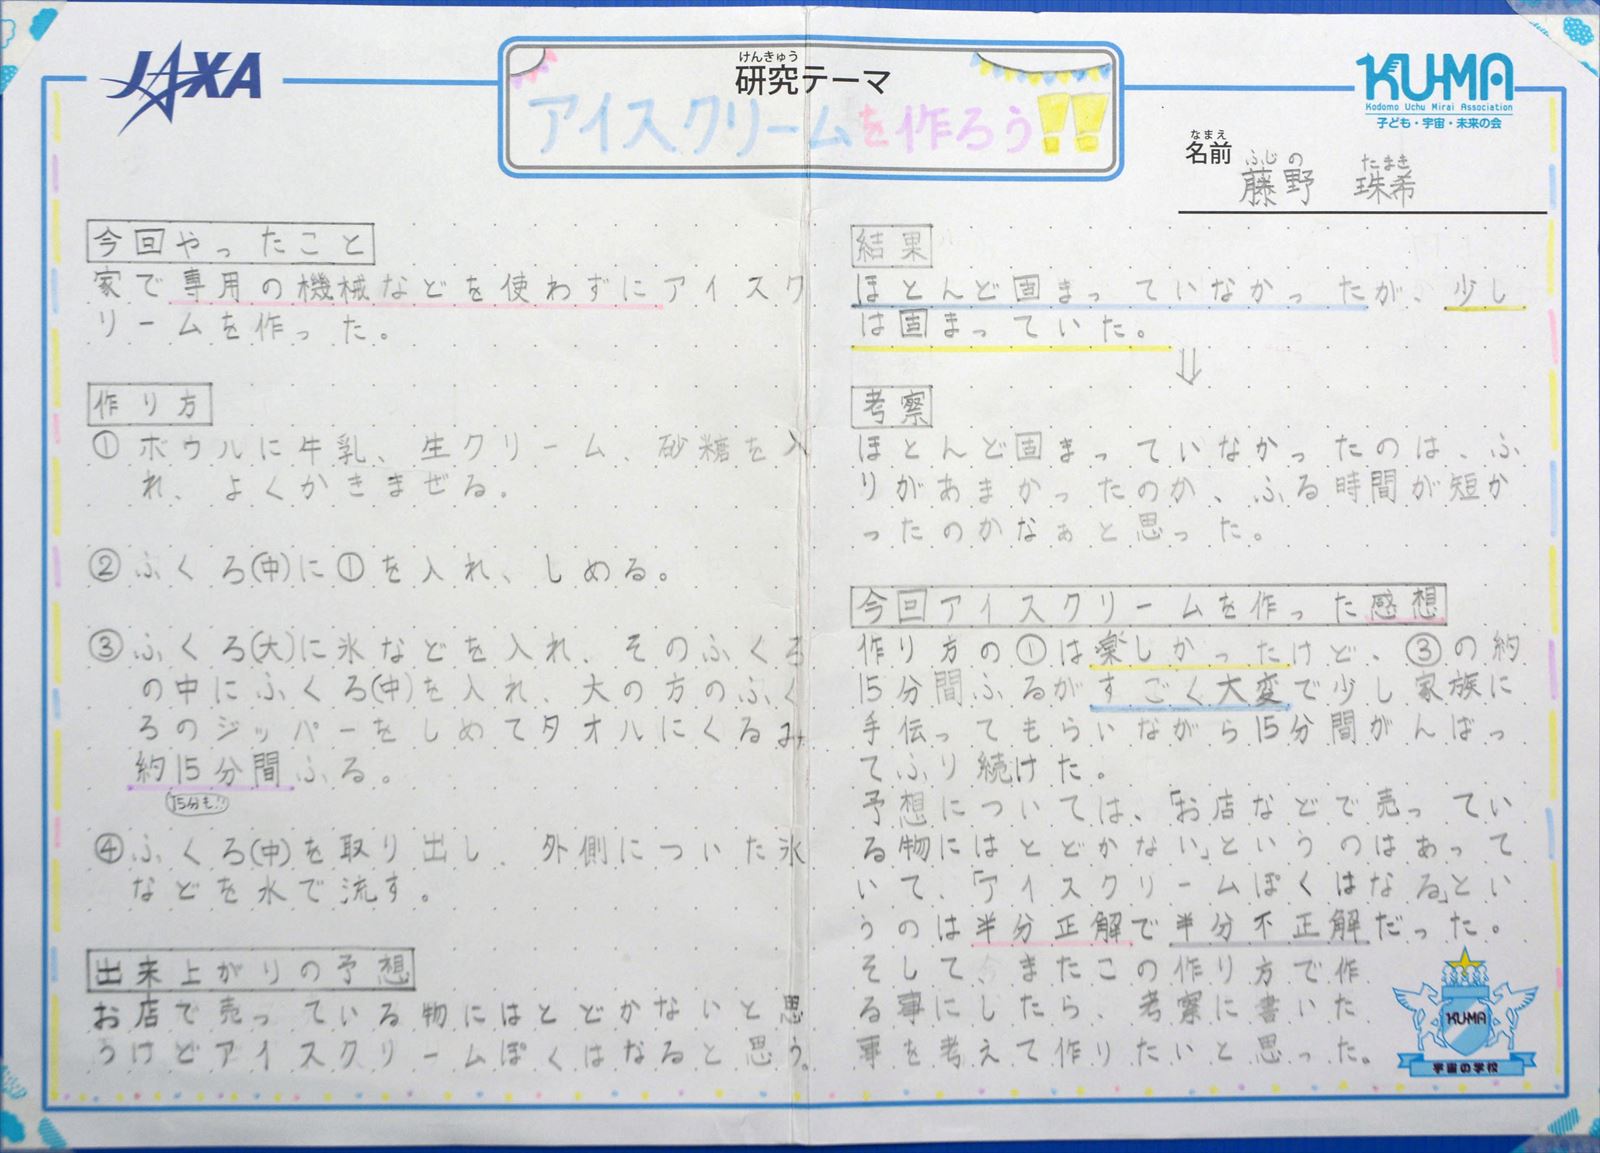 JAXA
けんきゅう
研究テーマ
アイスクリームを作ろう!!
KU-MA
Kodomo Uchu Mirai Association
子ども・宇宙・未来の会
なまえ
名前
ふじの たまき
藤野 珠希
今回やったこと
家で専用の機械などを使わずにアイスク
リームを作った。
作り方
① ボウルに牛乳、生クリーム、砂糖を入
れ、よくかきまぜる。
② ふくろ(中)に①を入れ、しめる。
③ ふくろ(大)に氷などを入れ、そのふくろ
の中にふくろ(中)を入れ、大の方のふく
ろのジッパーをしめてタオルにくるみ
約15分間ふる。
15分も!!
④ ふくろ(中)を取り出し、外側についた氷
などを水で流す。
出来上がりの予想
お店で売っている物にはとどかないと思
うけどアイスクリームぽくはなると思う。
結果
ほとんど固まっていなかったが、少し
は固まっていた。
⇓
考察
ほとんど固まっていなかったのは、ふ
りがあまかったのか、ふる時間が短か
ったのかなぁと思った。
今回アイスクリームを作った感想
作り方の①は楽しかったけど、③の約
15分間ふるがすごく大変で少し家族に
手伝ってもらいながら15分間がんばっ
てふり続けた。
予想については、「お店などで売ってい
る物にはとどかない」というのはあって
いて、「アイスクリームぽくはなる」とい
うのは半分正解で半分不正解だった。
そして、またこの作り方で作
る事にしたら、考察に書いた
事を考えて作りたいと思った。
KUMA
宇宙の学校